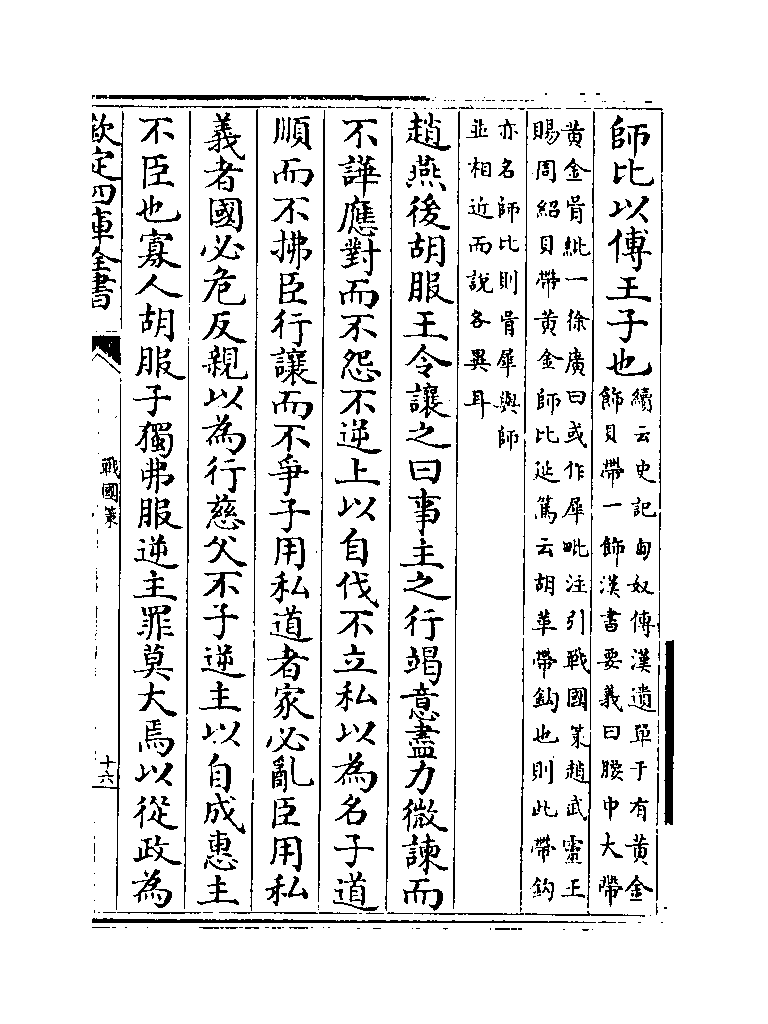 師比以傅王子也續云史記匈奴傳漢遺單于有黄金
飾貝帶一飾漢書要義曰腰中大帶
黄金胥紕一徐廣曰或作犀毗注引戰國策趙武靈王
賜周紹貝帶黄金師比延篤云胡革帶鈎也則此帶鈎
亦名師比則胥犀與師
並相近而說各異耳
趙燕後胡服王令讓之曰事主之行竭意盡力微諫而
不譁應對而不怨不逆上以自伐不立私以為名子道
順而不拂臣行讓而不爭子用私道者家必亂臣用私
義者國必危反親以為行慈父不子逆主以自成惠主
不臣也寡人胡服子獨弗服逆主罪莫大焉以從政為
欽定四庫全書
戰國策
十六